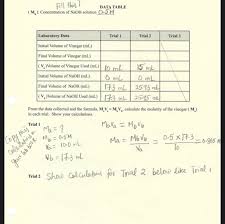 Fill this!
DATA TABLE
(Mb) Concentration of NaOH solution 0.5M
Laboratory Data Trial 1 Trial 2
Initial Volume of Vinegar (mL)
Final Volume of Vinegar (mL)
(Va) Volume of Vinegar Used (mL) 10 mL 15 mL
Initial Volume of NaOH (mL) 0 mL 0 mL
Final Volume of NaOH (mL) 17.3 mL
(Vb) Volume of NaOH Used (mL) 17.3 mL
From the data collected and the formula, MaVa = MbVb, calculate the molarity of the vinegar (Ma)
in each trial. Show your calculations.
Copy this
calculation in
your
Trial 1
Ma = ?
Mb = 0.5M
Va = 10.0 mL
Vb = 17.3 mL
MaVa = MbVb
Ma = MbVb / Va = 0.5 x 17.3 / 10
Trial 2 Show calculation for Trial 2 below like Trial 1